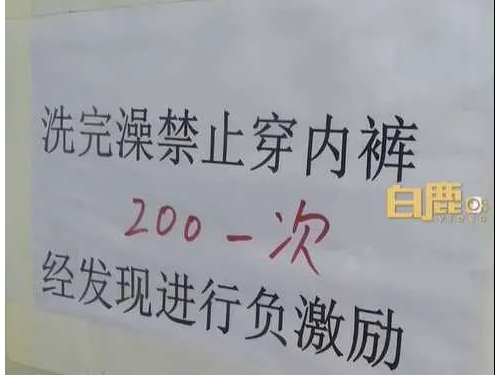 洗完澡禁止穿内裤
白鹿
VIDEO
200一次
经发现进行负激励